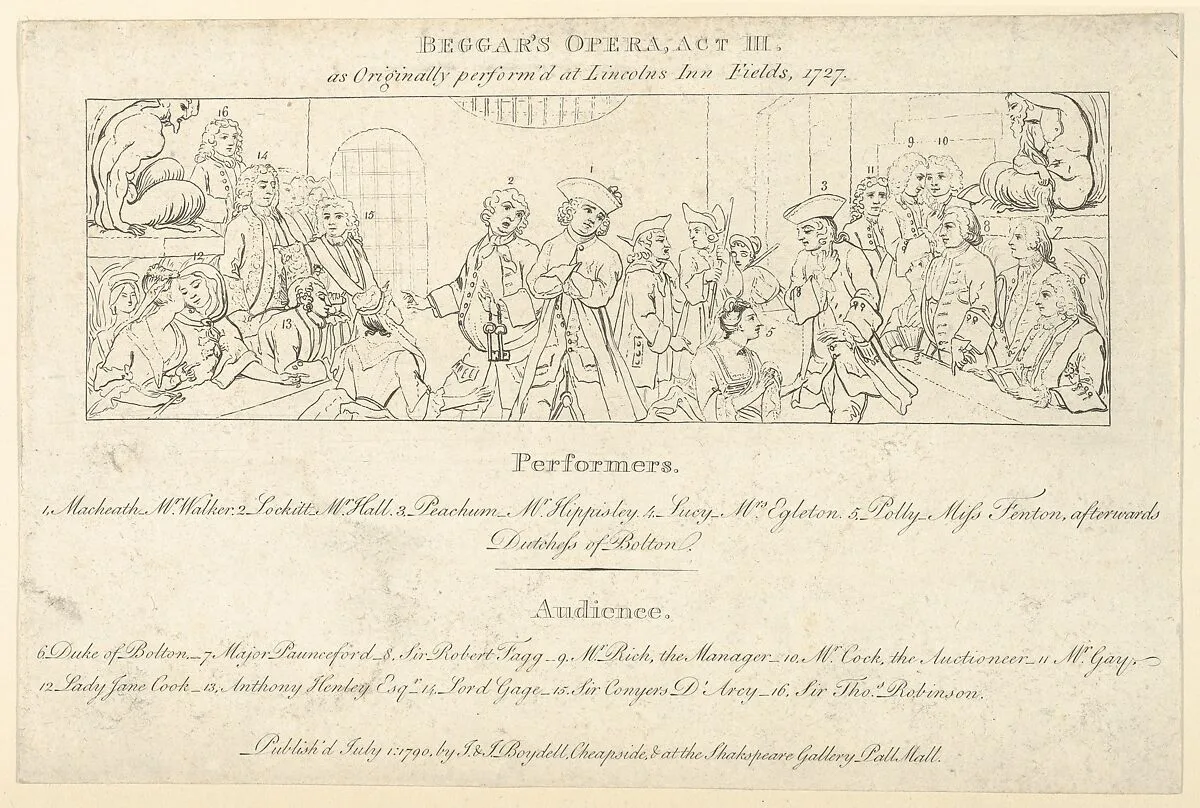 BEGGAR'S OPERA, ACT III.
as Originally perform'd at Lincolns Inn Fields, 1727.
16
14
15
12
13
2
1
3
11
9
10
8
7
6
5
Performers.
1, Macheath_Mr. Walker. 2_Lockitt_Mr. Hall. 3_Peachum_Mr. Hippisley. 4_Lucy_Mrs. Egleton. 5_Polly_Miſs Fenton, afterwards
Dutcheſs of Bolton.
Audience.
6_Duke of Bolton._7_Major Paunceford_8. Sir Robert Fagg_9. Mr. Rich, the Manager_10. Mr. Cock, the Auctioneer_11 Mr. Gay,
12_Lady Jane Cook_13, Anthony Henley Esqr. 14_Lord Gage_15. Sir Conyers D'Arcy_16, Sir Tho.s Robinson.
Publish'd July 1: 1790, by J. & J. Boydell, Cheapside, & at the Shakspeare Gallery Pall Mall.